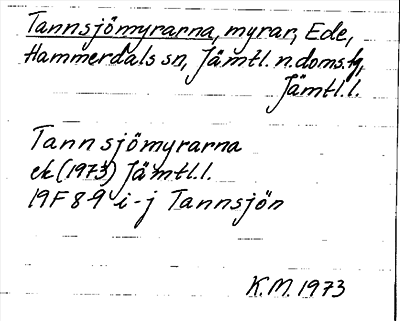 Tannsjömyrarna, myrar, Ede,
Hammerdals sn, Jämtl. n. doms.h,
Jämtl.l.
Tannsjömyrarna
ek (1973) Jämtl.l.
19F 8-9 i-j Tannsjön
K.M. 1973